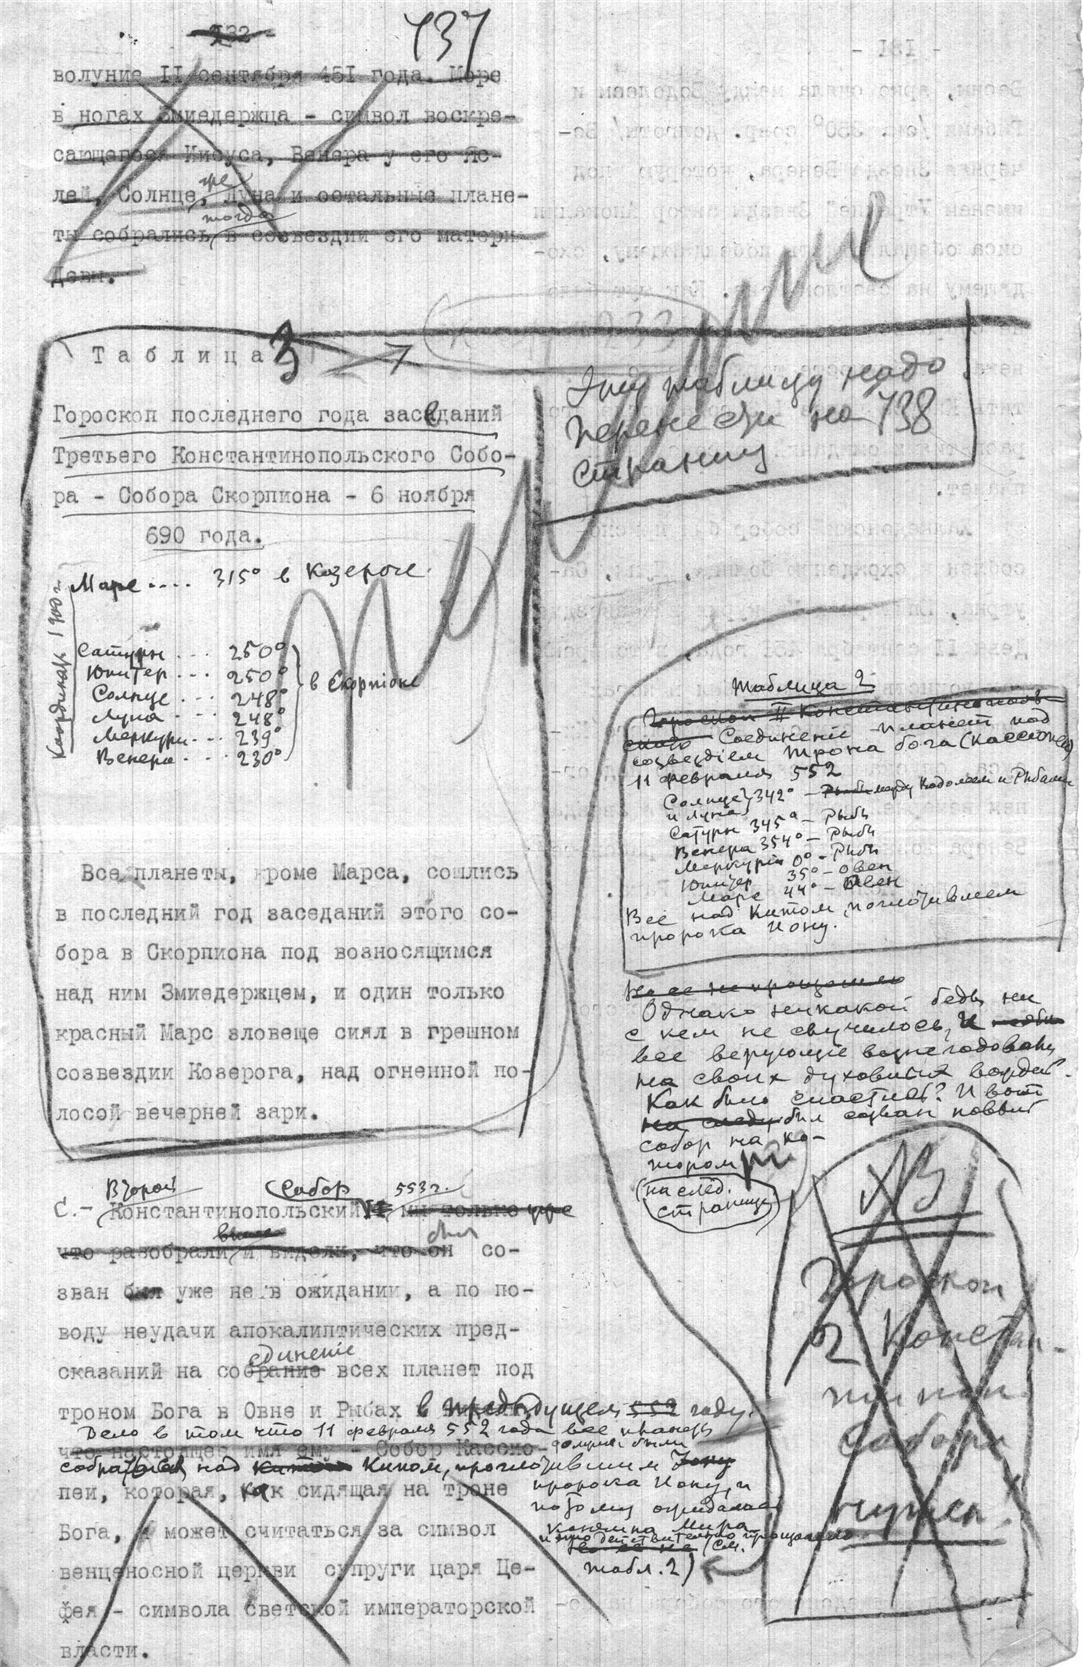 737
волуние II сентября 451 года. Море
в ногах Змиедержца - символ воскре-
сающегося Иисуса, Венера у его Яс-
лей, Солнце, Луна и остальные плане-
тогда
ты собрались в созвездии его матери
Девы.
Таблица 3
Эту таблицу надо
перенести на 738
страницу
Гороскоп последнего года заседаний
Третьего Константинопольского Собо-
ра - Собора Скорпиона - 6 ноября
690 года.
Марс .... 315° в Козероге.
Сатурн ... 250°
Юпитер ... 250°
Солнце ... 248°
Луна ... 248°
Меркурий ... 239°
Венера ... 230°
в Скорпионе
Все планеты, кроме Марса, сошлись
в последний год заседаний этого со-
бора в Скорпиона под возносящимся
над ним Змиедержцем, и один только
красный Марс зловеще сиял в грешном
созвездии Козерога, над огненной по-
лосой вечерней зари.
Таблица 2
Гороскоп II Константинополь-
ского Соединение планет под
созвездием Трона бога (Кассиопеи)
11 февраля 552
Солнце и Луна } 342° - между Водолеем и Рыбами
Сатурн 345° - Рыбы
Венера 354° - Рыбы
Меркурий 0° - Рыбы
Юпитер 35° - Овен
Марс 44° - Овен
Все над Китом, поглотившем
пророка Иону.
Однако никакой беды ни
с кем не случилось, и
все верующие вознегодовали
на своих духовных вождей.
Как было спастись? И вот
был созван новый
собор на ко-
тором
(на след.
странице)
Второй Собор 553 г.
С.- Константинопольский II мы только уже
что разобрали и видели, что он со-
был
зван был уже не в ожидании, а по по-
воду неудачи апокалиптических пред-
единение
сказаний на собрание всех планет под
троном Бога в Овне и Рыбах в предыдущем 552 году.
Дело в том что 11 февраля 552 года все планеты
что настоящее имя ему - Собор Кассио-
были
собрались над Китом, проглотившим
пеи, которая, как сидящая на троне
пророка Иону, и
поэтому ожидался
Бога, и может считаться за символ
конец Мира
(см.
табл. 2)
венценосной церкви супруги царя Це-
фея - символа светской императорской
власти.
NB
Гороскоп
2 Констан-
тинопол.
Собора
нужен.